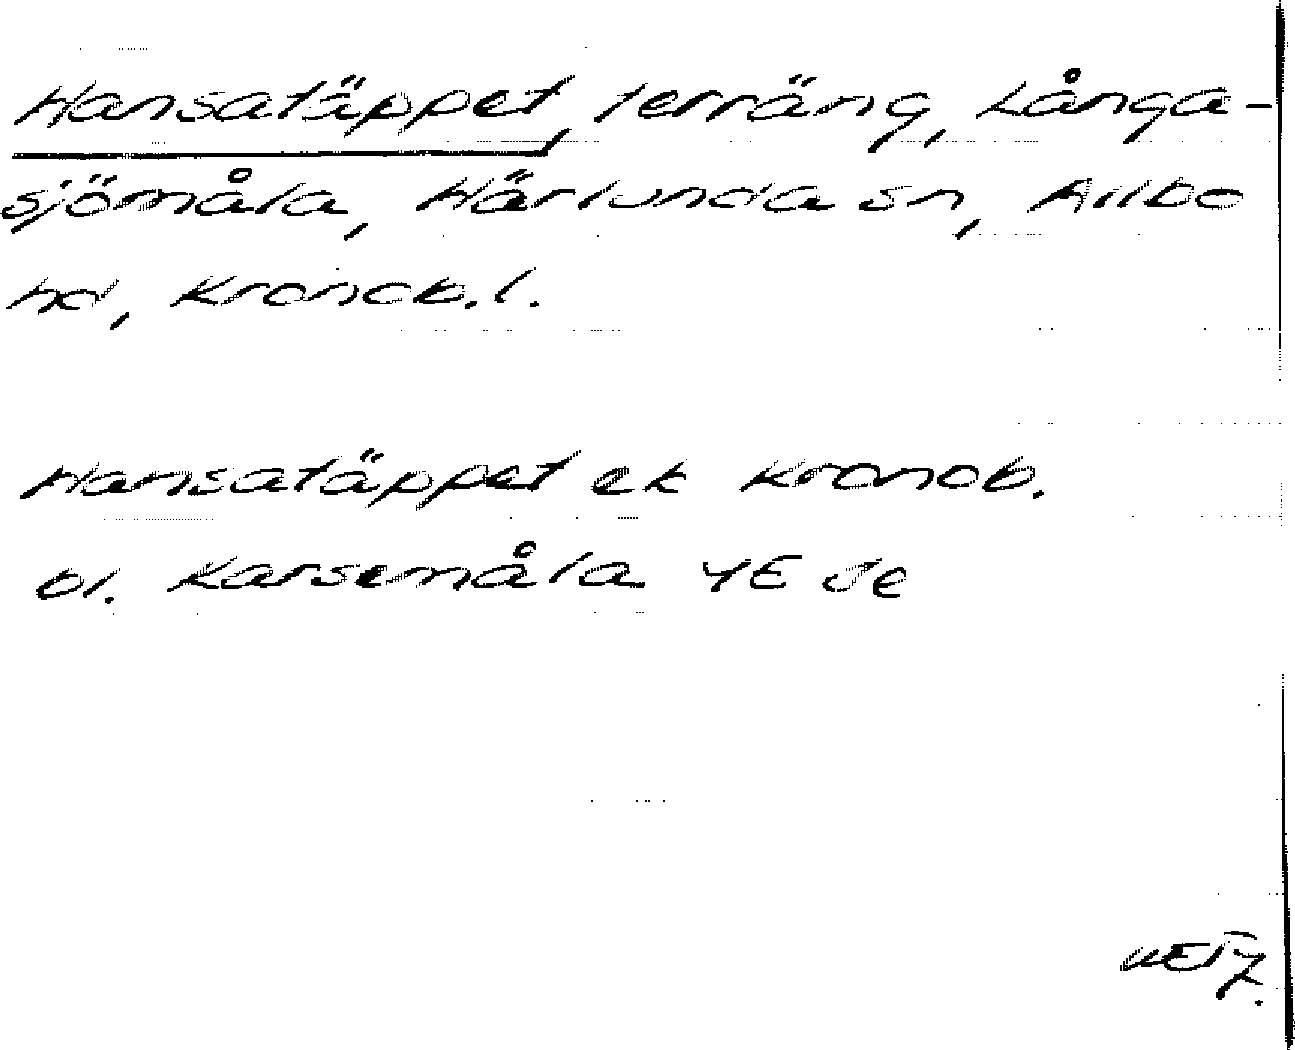 Hansatäppet, terräng, Långa-
sjömåla, Härlunda sn, Allbo
hd, Kronob.l.
Hansatäppet ek Kronob.
bl. Karsemåla 4E Je